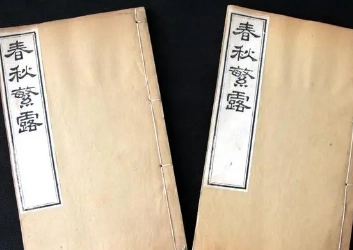 春秋繁露
春秋繁露